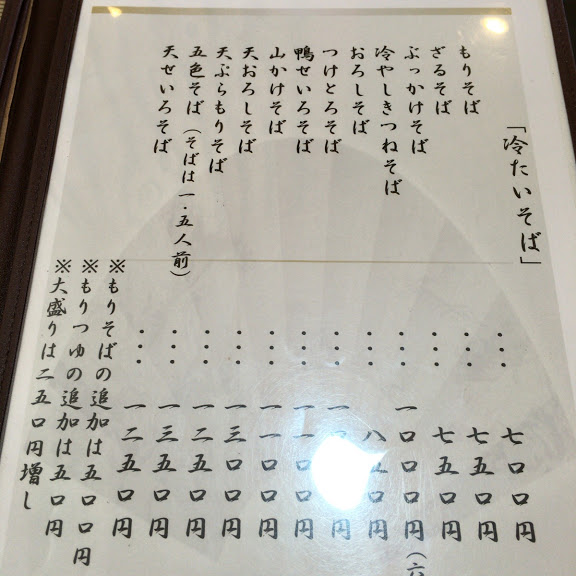 「冷たいそば」
もりそば ・・・ 七〇〇円
ざるそば ・・・ 七五〇円
ぶっかけそば ・・・ 七五〇円
冷やしきつねそば ・・・ 一〇〇〇円(六
おろしそば ・・・ 八五〇円
つけとろそば ・・・ 円
鴨せいろそば ・・・ 一一〇〇円
山かけそば ・・・ 一一〇〇円
天おろしそば ・・・ 一三〇〇円
天ぷらもりそば ・・・ 一二五〇円
五色そば(そばは一・五人前) ・・・ 一三五〇円
天せいろそば ・・・ 一二五〇円
※もりそばの追加は五〇〇円
※もりつゆの追加は五〇円
※大盛りは二五〇円増し